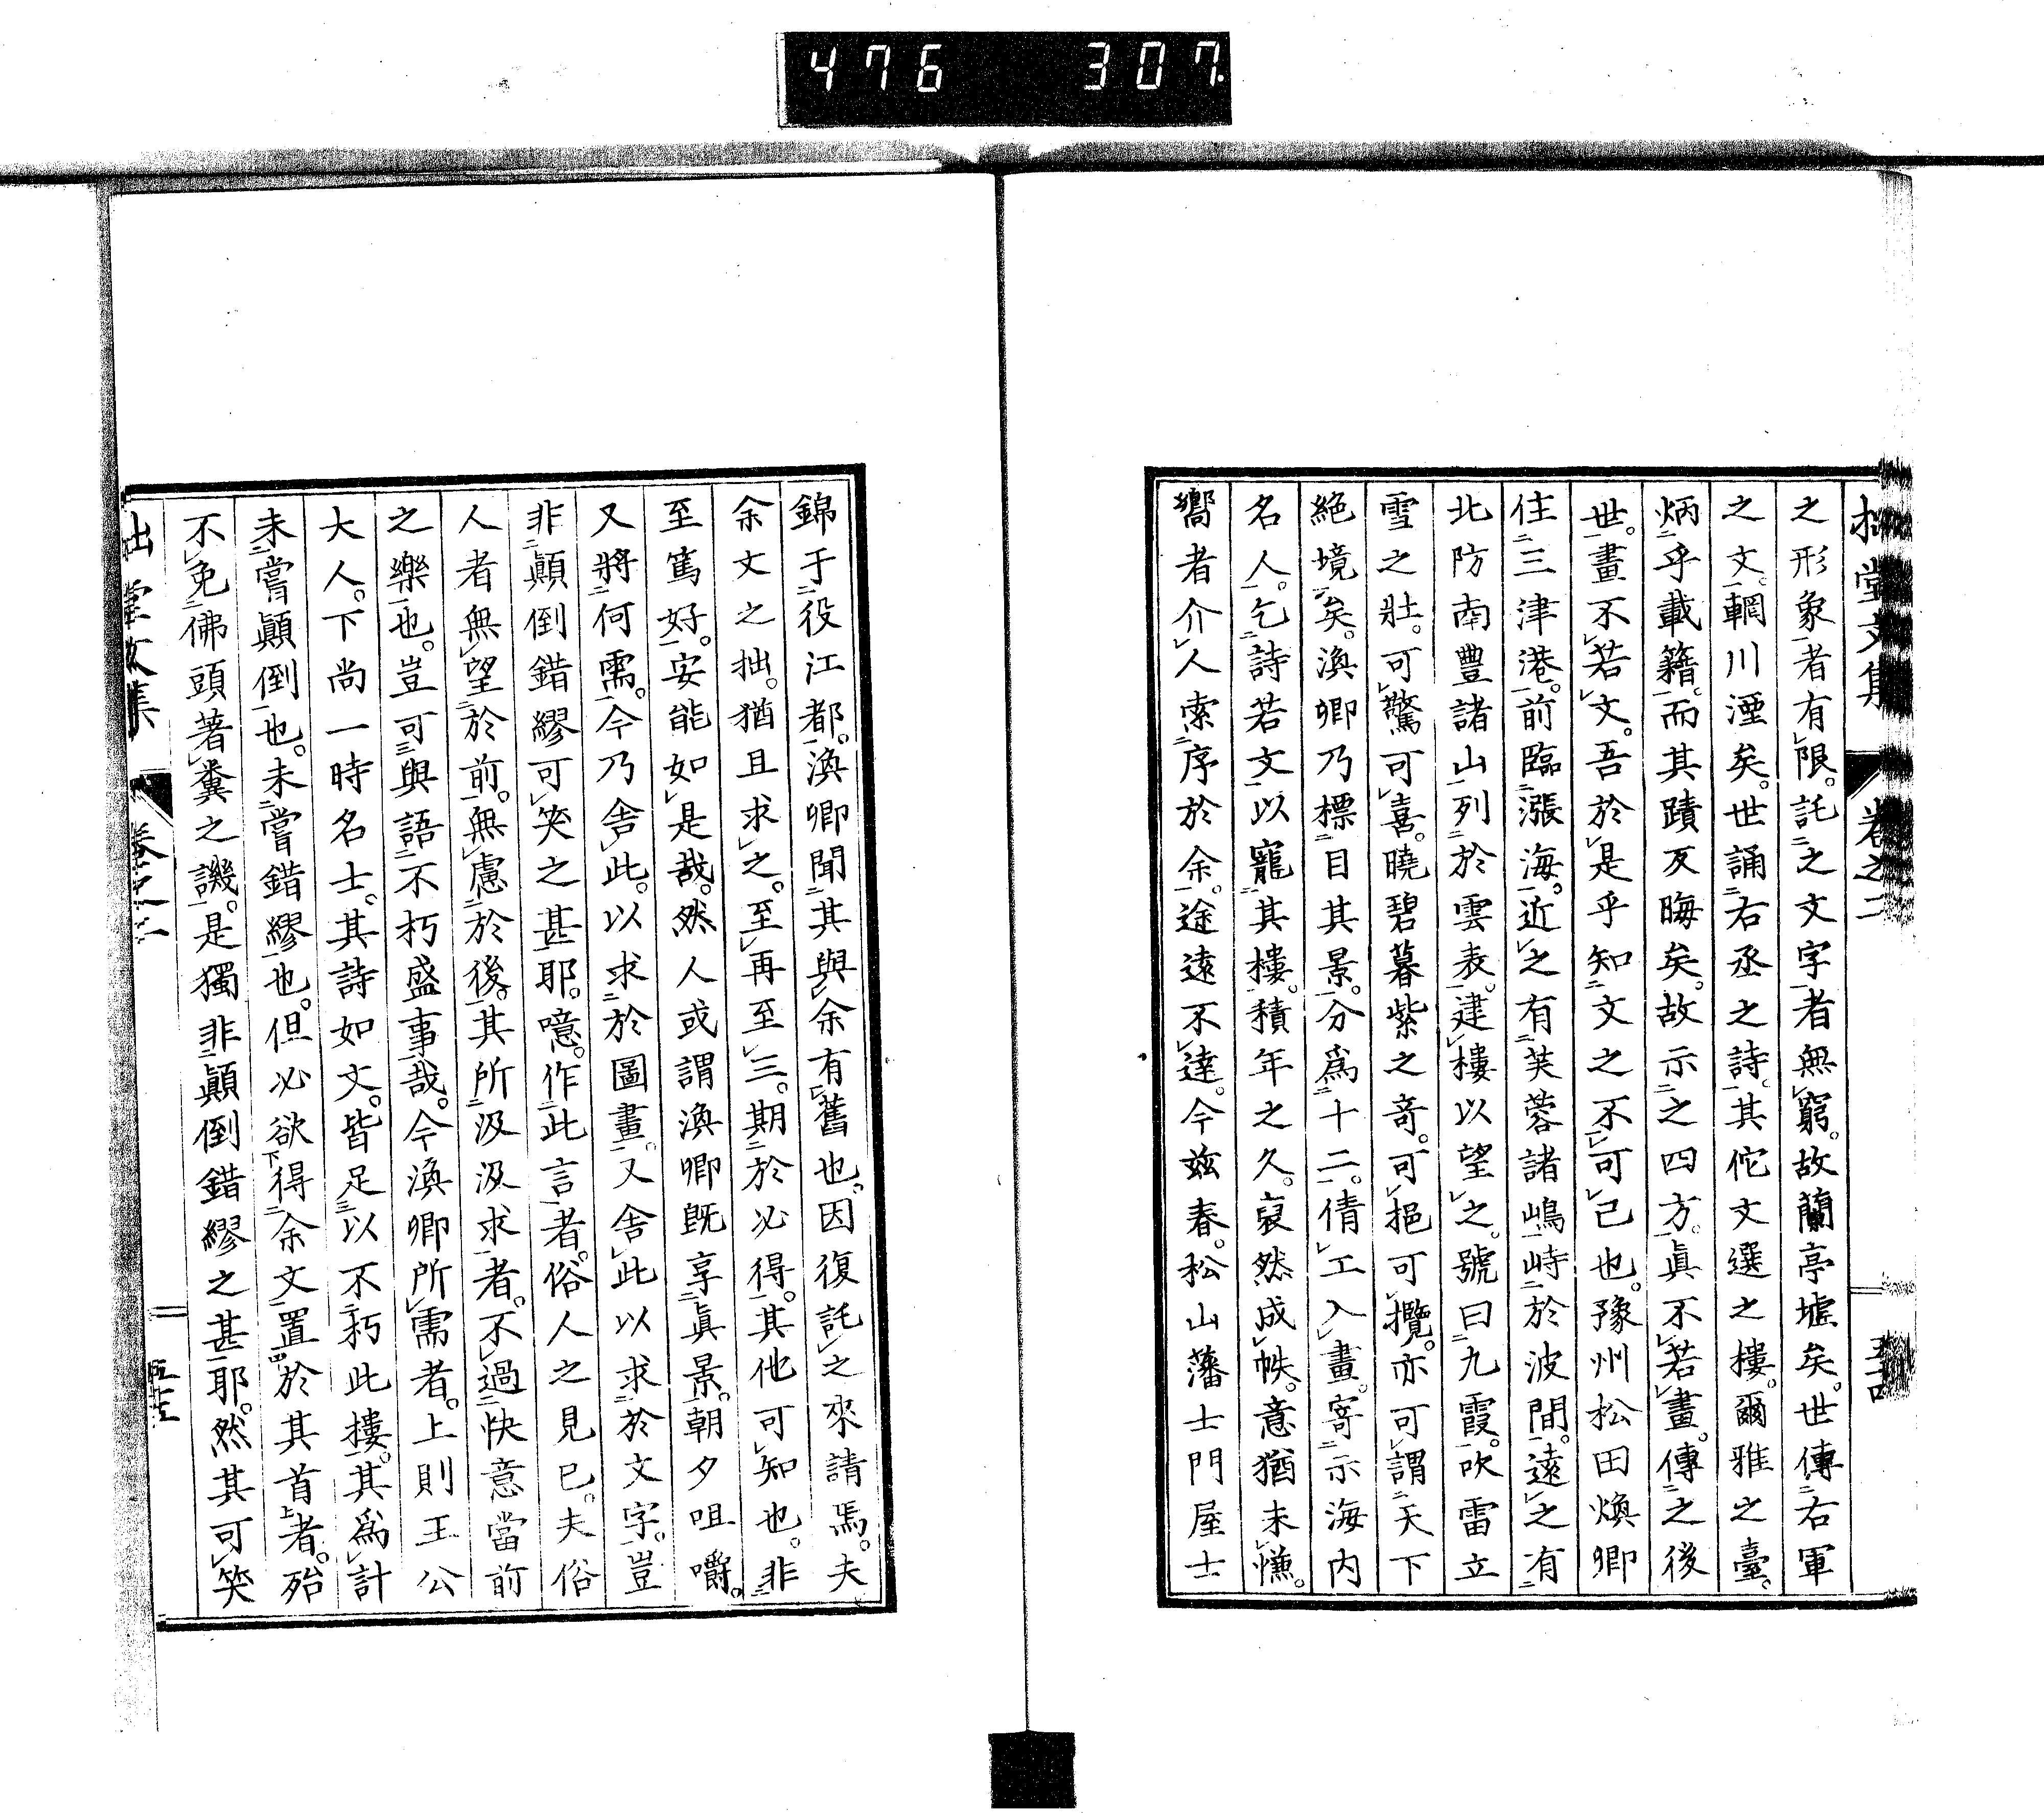 476 307.
拙堂文集 卷之二
之形象者有限。託之文字者無窮。故蘭亭墟矣。世傳右軍
之文。輞川湮矣。世誦右丞之詩。其佗文選之樓。爾雅之臺。
炳乎載籍。而其蹟反晦矣。故示之四方。眞不若畫。傳之後
世。畫不若文。吾於是乎知文之不可已也。豫州松田煥卿
住三津港。前臨漲海。近之有芙蓉諸嶋峙於波間。遠之有
北防南豐諸山列於雲表。建樓以望之。號曰九霞。吹雷立
雪之壯。可驚可喜。曉碧暮紫之奇。可挹可攬。亦可謂天下
絶境矣。渙卿乃標目其景。分爲十二。倩工入畫。寄示海内
名人。乞詩若文以寵其樓。積年之久。裒然成帙。意猶未慊。
嚮者介人索序於余。途遠不達。今玆春。松山藩士門屋士
錦于役江都。渙卿聞其與余有舊也。因復託之來請焉。夫
余文之拙。猶且求之。至再至三。期於必得。其他可知也。非
至篤好。安能如是哉。然人或謂渙卿既享眞景。朝夕咀嚼。
又將何需。今乃舍此。以求於圖畫。又舍此以求於文字。豈
非顚倒錯繆可笑之甚耶。噫。作此言者。俗人之見已。夫俗
人者無望於前。無慮於後。其所汲汲求者。不過快意當前
之樂也。豈可與語不朽盛事哉。今渙卿所需者。上則王公
大人。下尚一時名士。其詩如文。皆足以不朽此樓。其爲計
未嘗顚倒也。未嘗錯繆也。但必欲得余文置於其首者。殆
不免佛頭著糞之譏。是獨非顚倒錯繆之甚耶。然其可笑
拙堂文集 卷之二